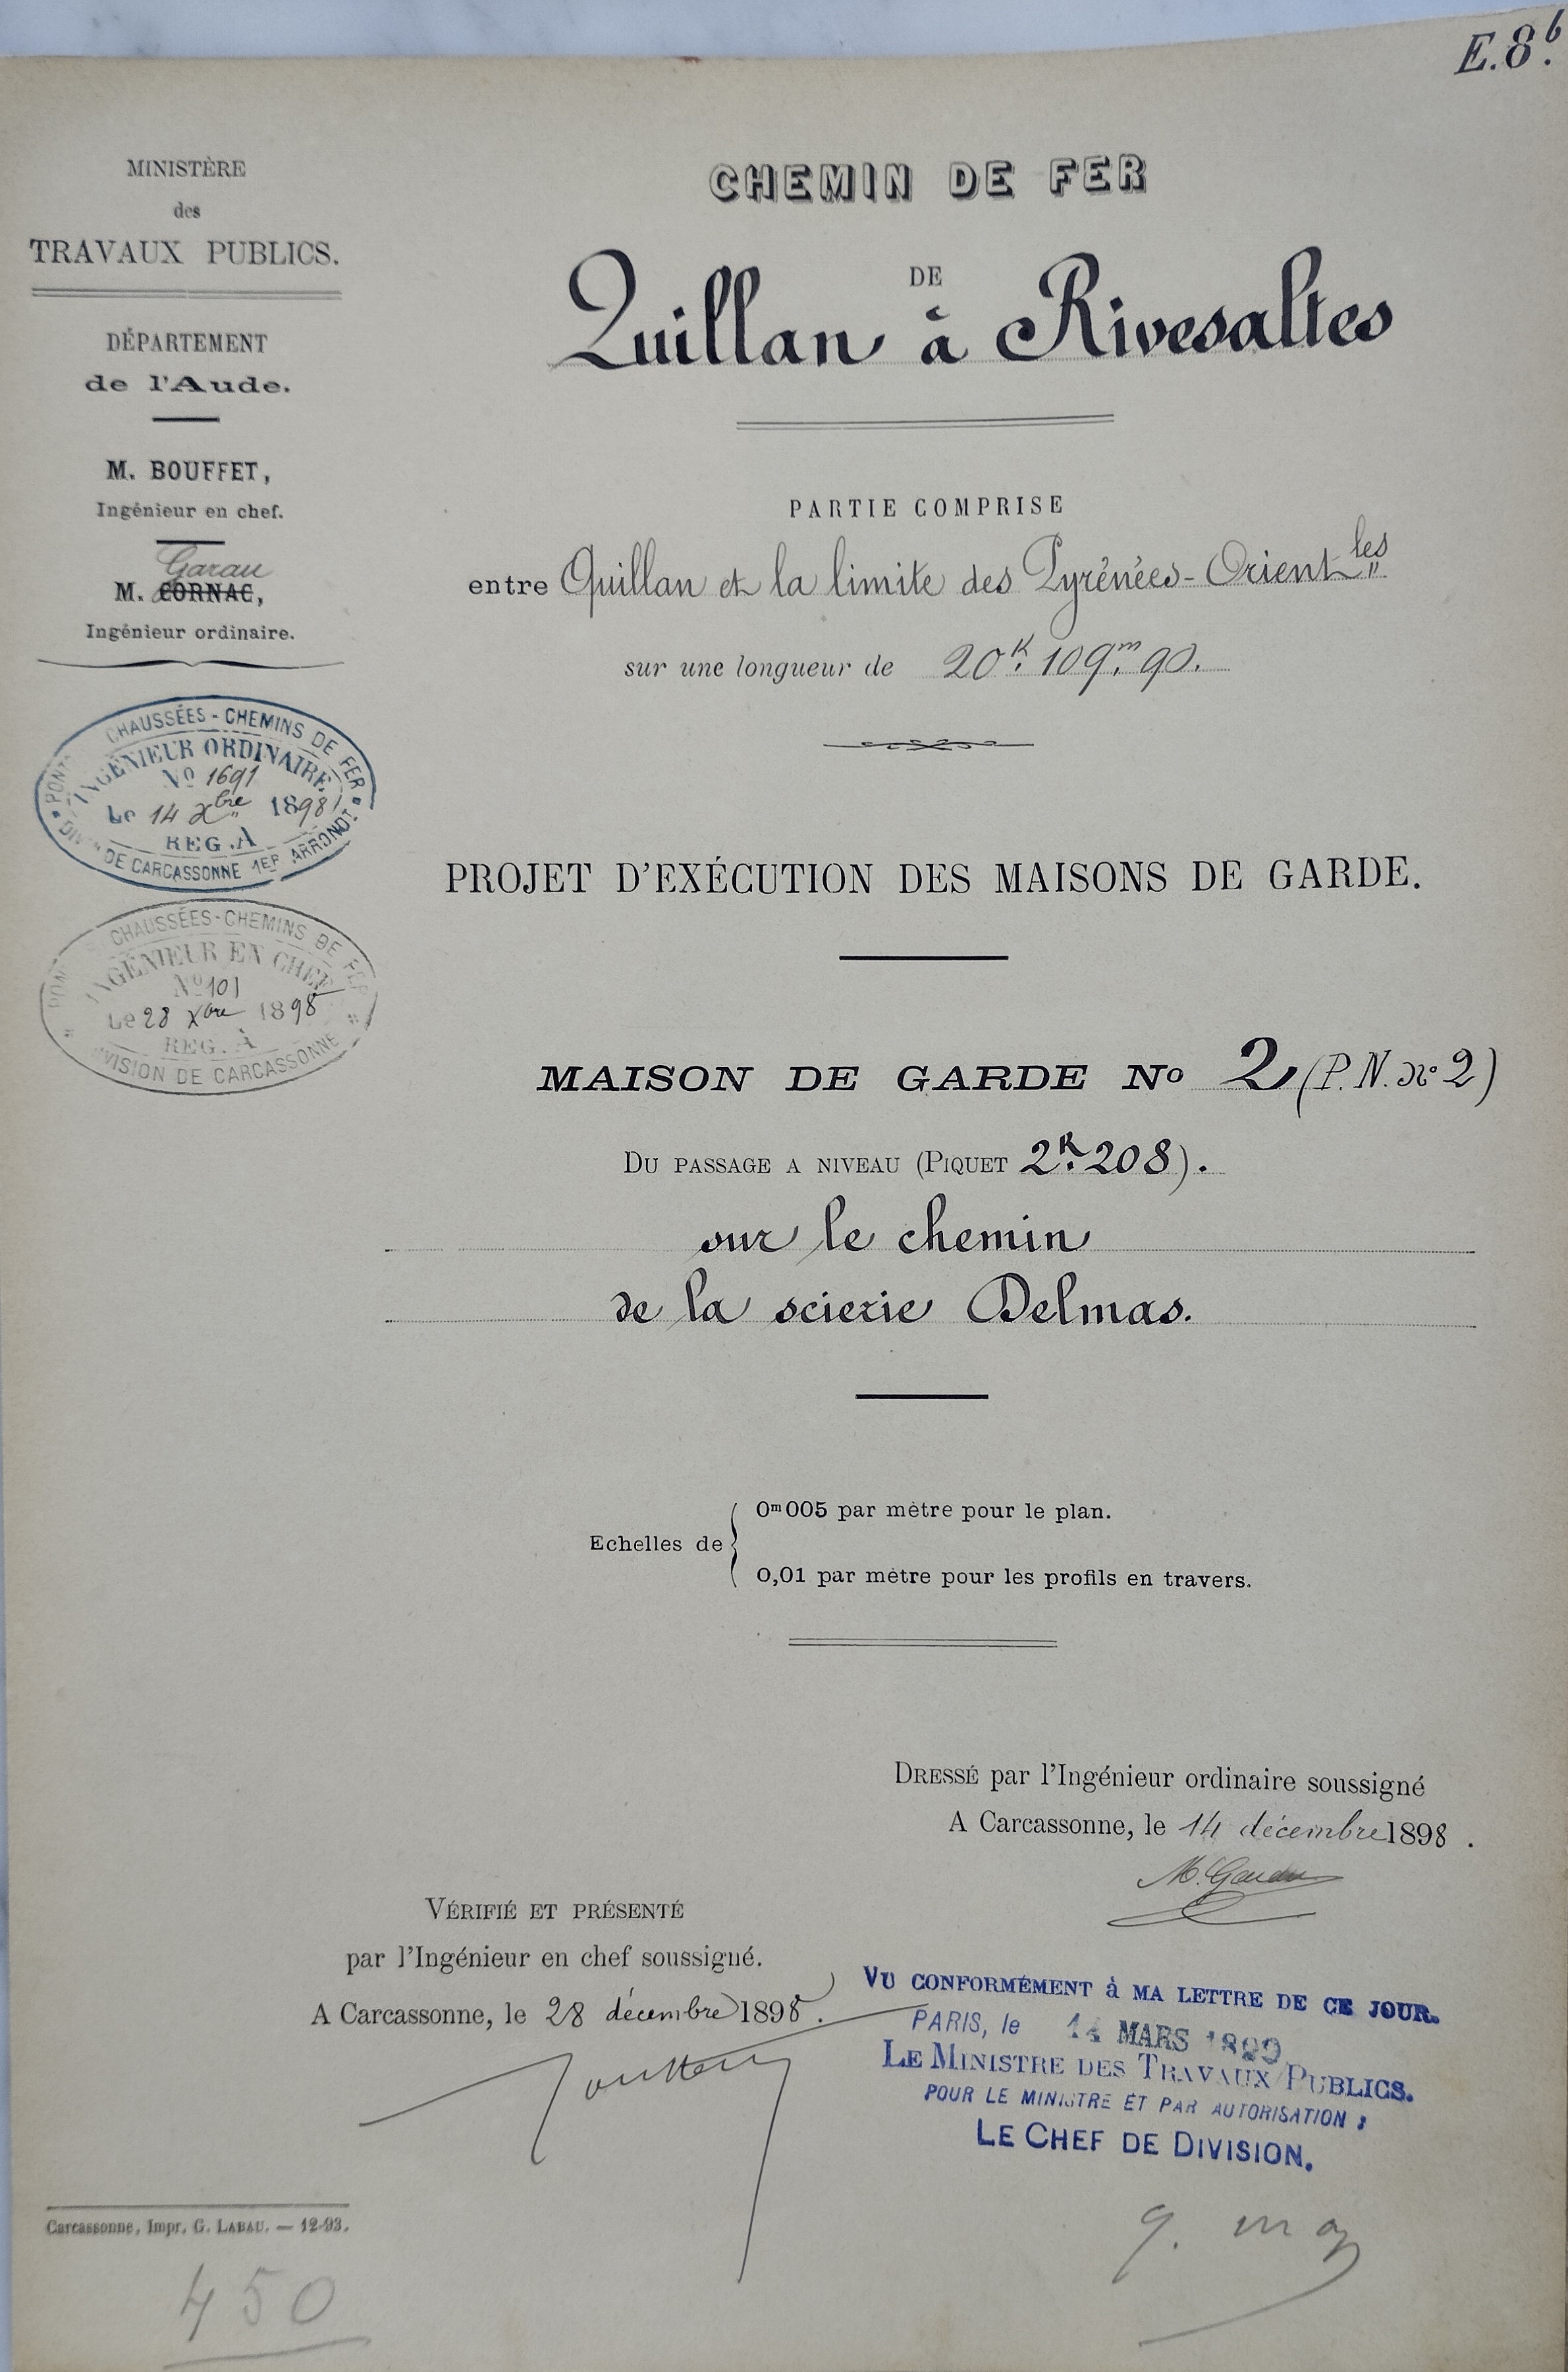 E.8b.
MINISTÈRE
des
TRAVAUX PUBLICS.
DÉPARTEMENT
de l'Aude.
M. BOUFFET,
Ingénieur en chef.
Garau
M. CORNAC,
Ingénieur ordinaire.
PONTS CHAUSSÉES - CHEMINS DE FER
INGÉNIEUR ORDINAIRE
No 1691
Le 14 Xbre 1898
REG. A
DIVon DE CARCASSONNE 1ER ARRONDT
CHAUSSÉES - CHEMINS DE FER
INGÉNIEUR EN CHEF
No 101
Le 28 Xbre 1898
REG. A
DIVISION DE CARCASSONNE
CHEMIN DE FER
DE
Quillan à Rivesaltes
PARTIE COMPRISE
entre Quillan et la limite des Pyrénées-Orientles
sur une longueur de 20K. 109m. 90.
PROJET D'EXÉCUTION DES MAISONS DE GARDE.
MAISON DE GARDE No 2 (P. N. no 2)
DU PASSAGE A NIVEAU (PIQUET 2K. 208).
sur le chemin
de la scierie Delmas.
Echelles de
0m005 par mètre pour le plan.
0,01 par mètre pour les profils en travers.
DRESSÉ par l'Ingénieur ordinaire soussigné
A Carcassonne, le 14 décembre 1898.
M. Garau
VÉRIFIÉ ET PRÉSENTÉ
par l'Ingénieur en chef soussigné.
A Carcassonne, le 28 décembre 1898.
VU CONFORMÉMENT à MA LETTRE DE CE JOUR.
PARIS, le 14 MARS 1899
LE MINISTRE DES TRAVAUX PUBLICS.
POUR LE MINISTRE ET PAR AUTORISATION :
LE CHEF DE DIVISION.
Carcassonne, Impr. G. LABAU. — 12-93.
450